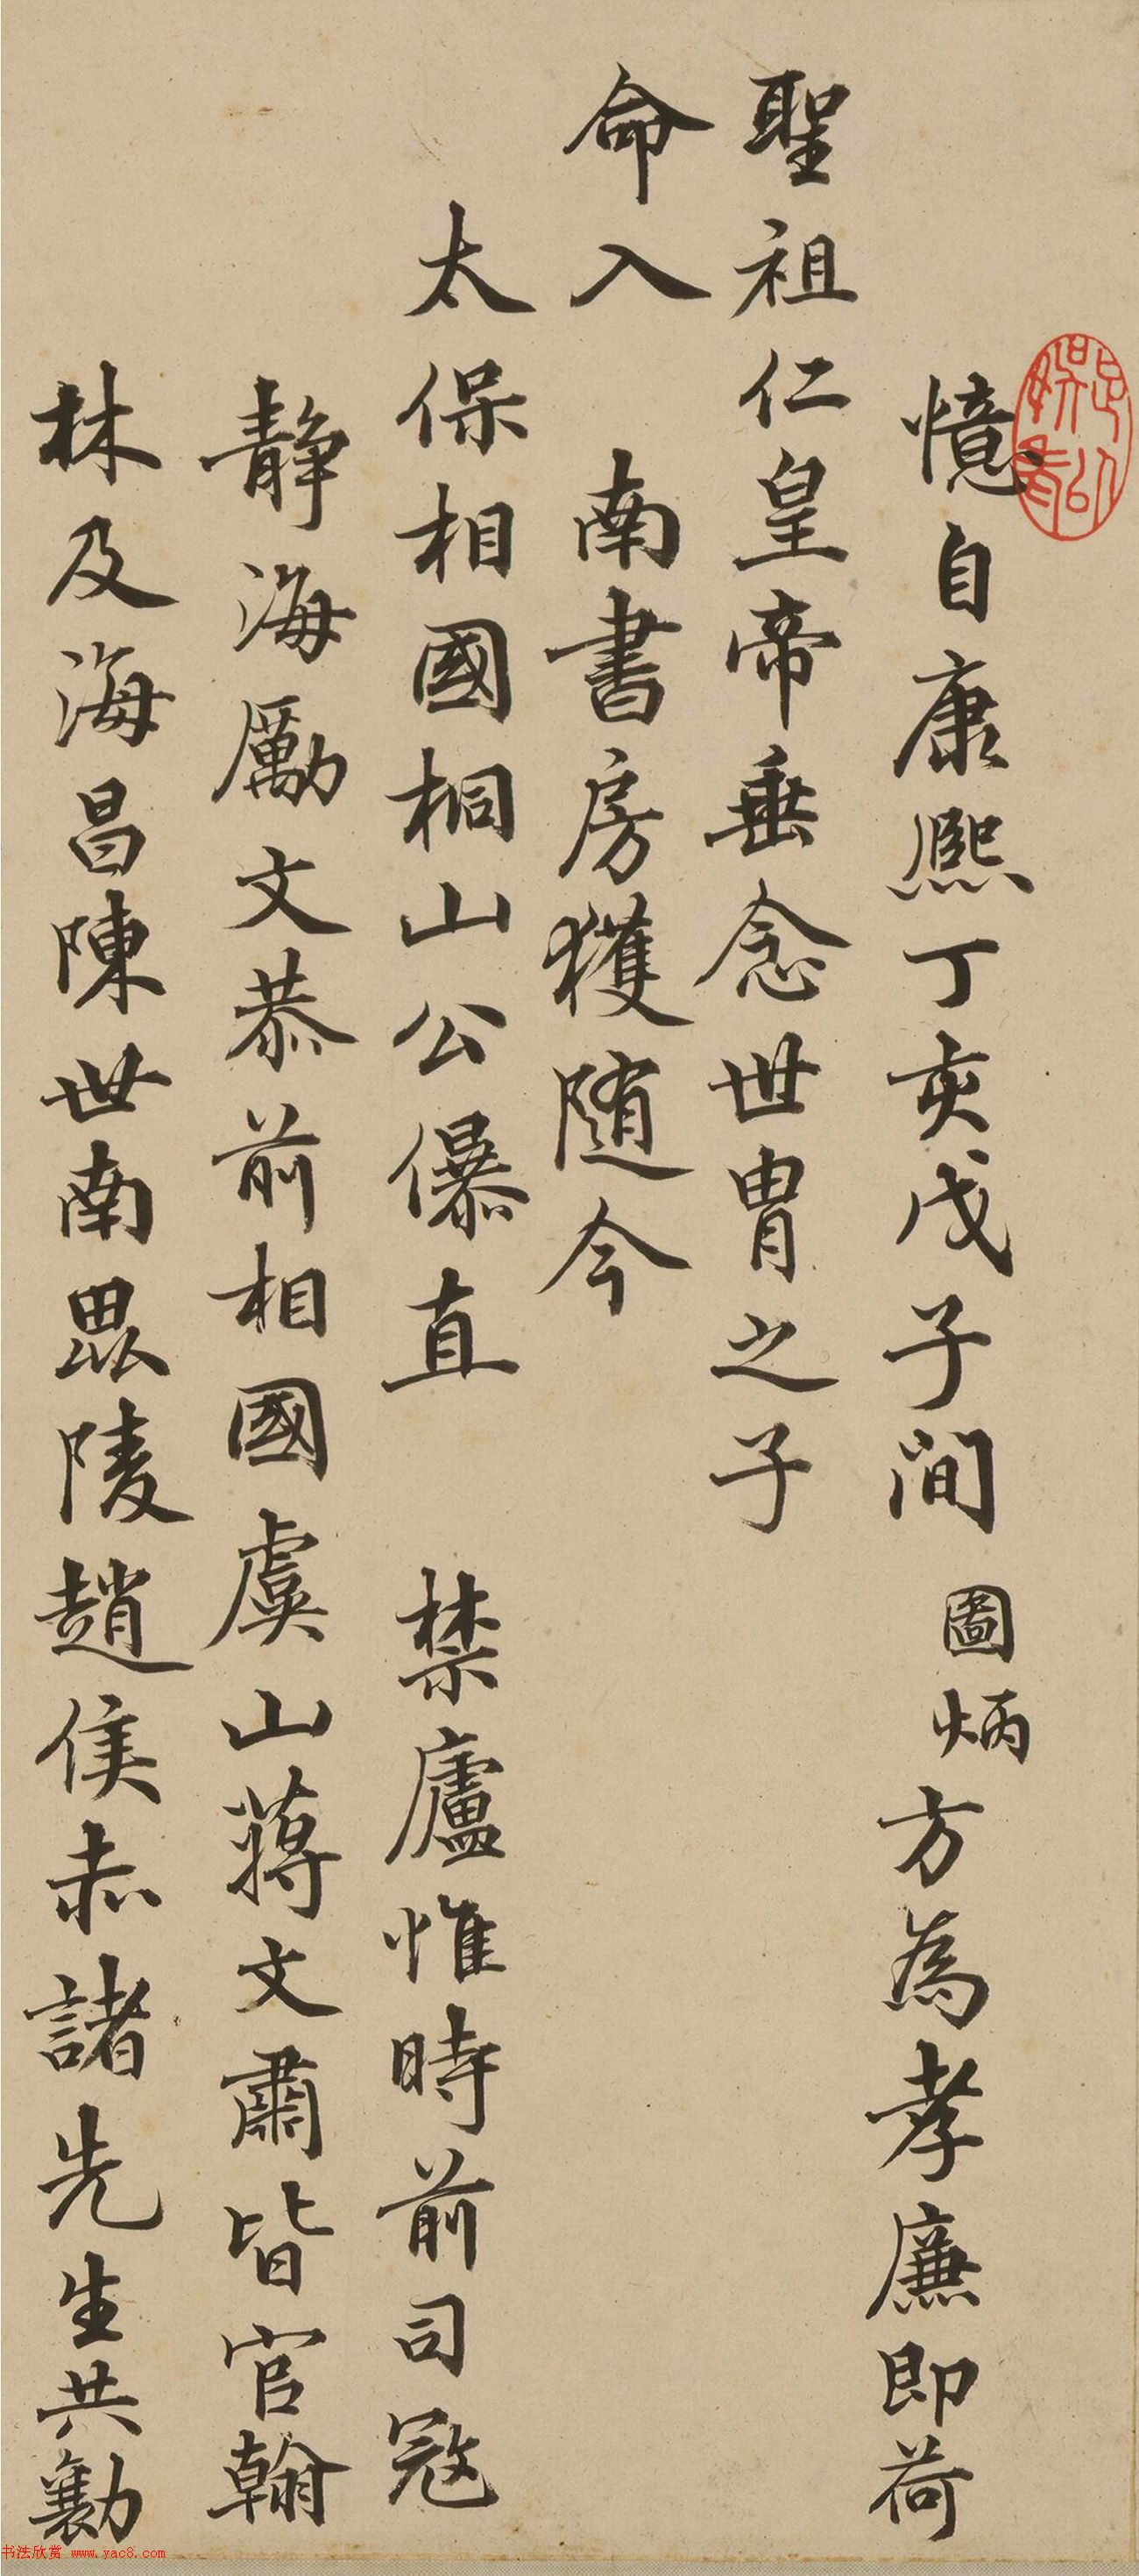 憶自康熙丁亥戊子間圖炳方為孝廉即荷
聖祖仁皇帝垂念世胄之子
命入 南書房獲随今
太保相國桐山公儤直 禁廬惟時前司寇
静海勵文恭前相國虞山蔣文肅皆官翰
林及海昌陳世南毘陵趙侯赤諸先生共勷
书法欣赏 www.yac8.com